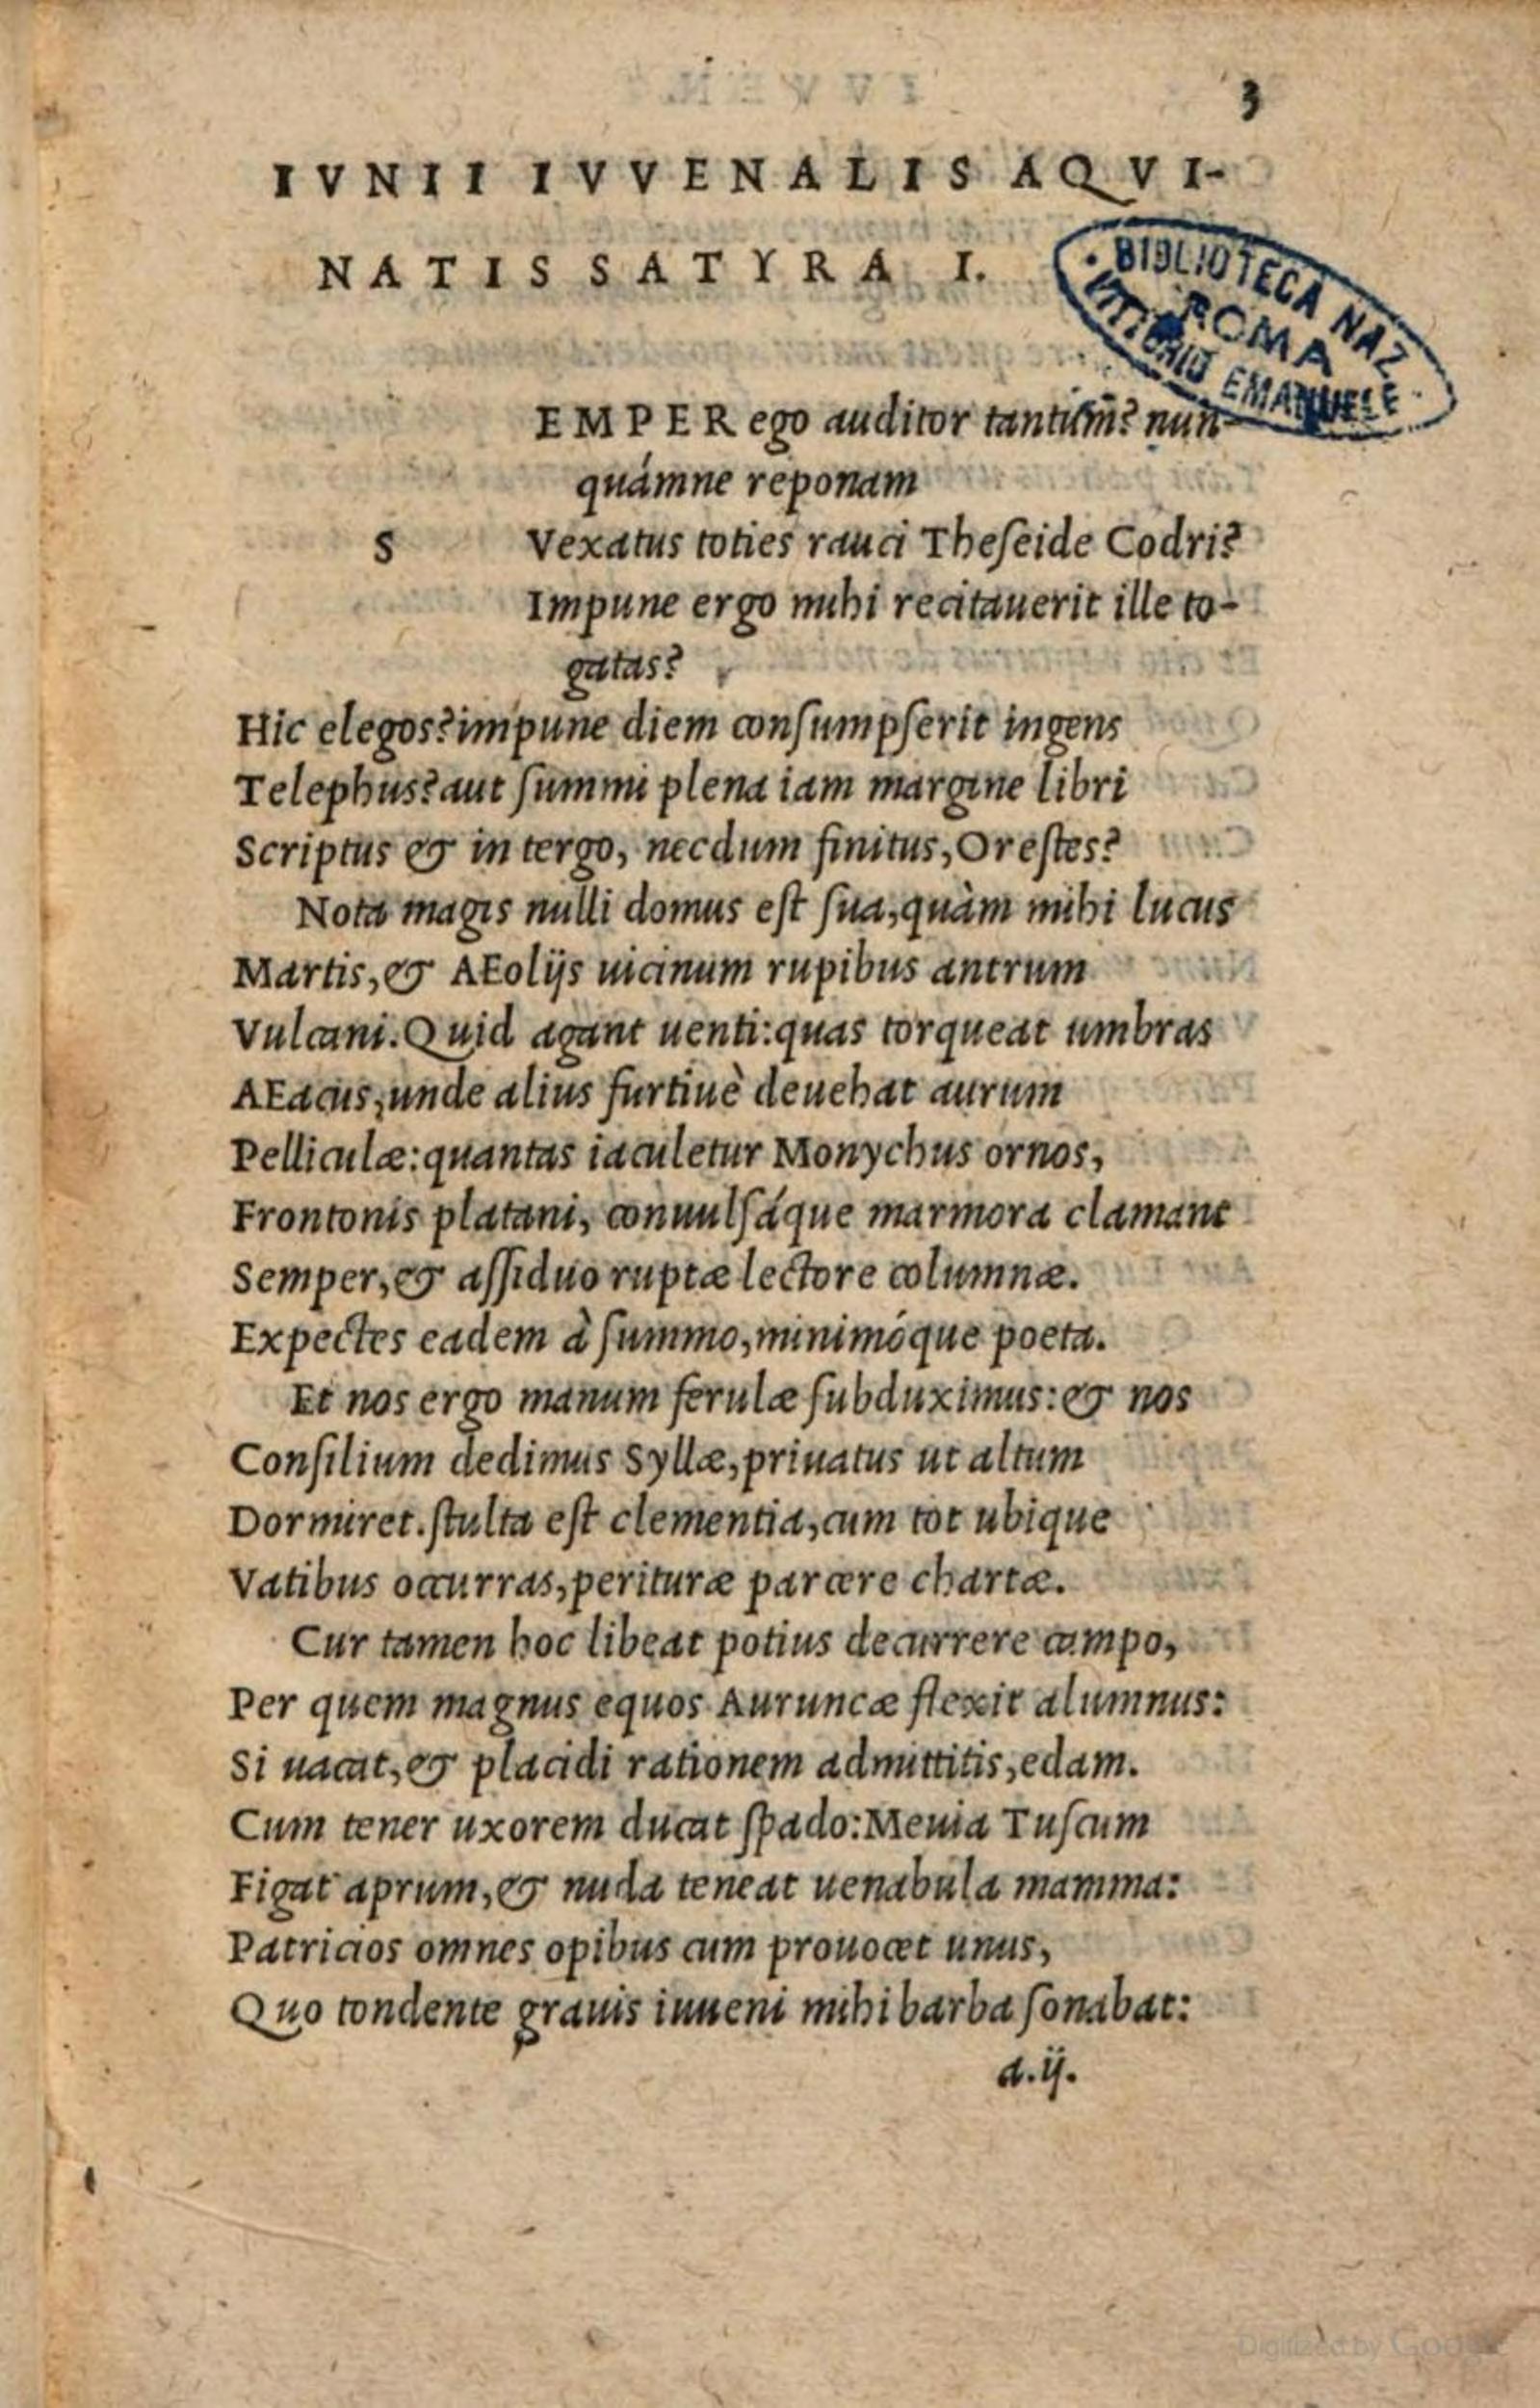 3
IVNII IVVENALIS AQVI-
NATIS SATYRA I.
BIBLIOTECA NAZ.
ROMA
VITTORIO EMANUELE
EMPER ego auditor tantúm? nun-
quámne reponam
S Vexatus toties rauci Theſeide Codri?
Impune ergo mihi recitauerit ille to-
gatas?
Hic elegos? impune diem conſumpſerit ingens
Telephus? aut ſummi plena iam margine libri
Scriptus & in tergo, necdum finitus, Oreſtes?
Nota magis nulli domus eſt ſua, quàm mihi lucus
Martis, & AEolijs uicinum rupibus antrum
Vulcani. Quid agant uenti: quas torqueat umbras
AEacus, unde alius furtiuè deuehat aurum
Pelliculæ: quantas iaculetur Monychus ornos,
Frontonis platani, conuulſáque marmora clamant
Semper, & aſſiduo ruptæ lectore columnæ.
Expectes eadem à ſummo, minimóque poeta.
Et nos ergo manum ferulæ ſubduximus: & nos
Conſilium dedimus Syllæ, priuatus ut altum
Dormiret. ſtulta eſt clementia, cum tot ubique
Vatibus occurras, perituræ parcere chartæ.
Cur tamen hoc libeat potius decurrere campo,
Per quem magnus equos Auruncæ flexit alumnus:
Si uacat, & placidi rationem admittitis, edam.
Cum tener uxorem ducat ſpado: Meuia Tuſcum
Figat aprum, & nuda teneat uenabula mamma:
Patricios omnes opibus cum prouocet unus,
Quo tondente grauis iuueni mihi barba ſonabat:
a.ij.
Digitized by Google